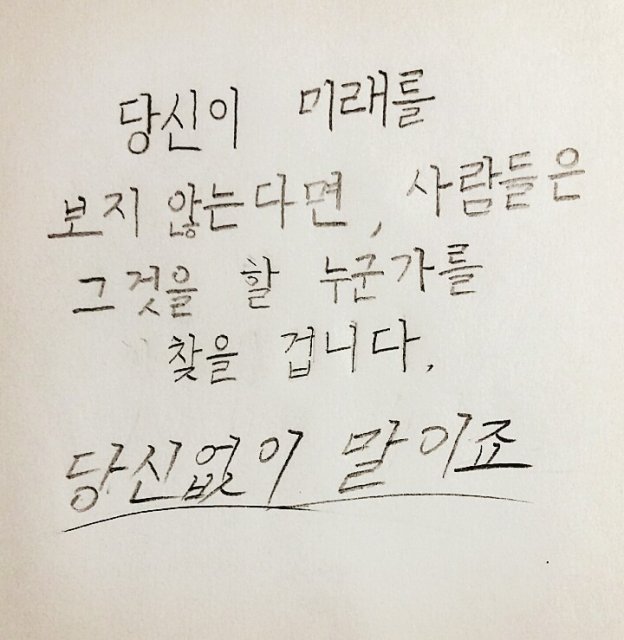 당신이 미래를
보지 않는다면, 사람들은
그것을 할 누군가를
찾을 겁니다.
당신없이 말이죠